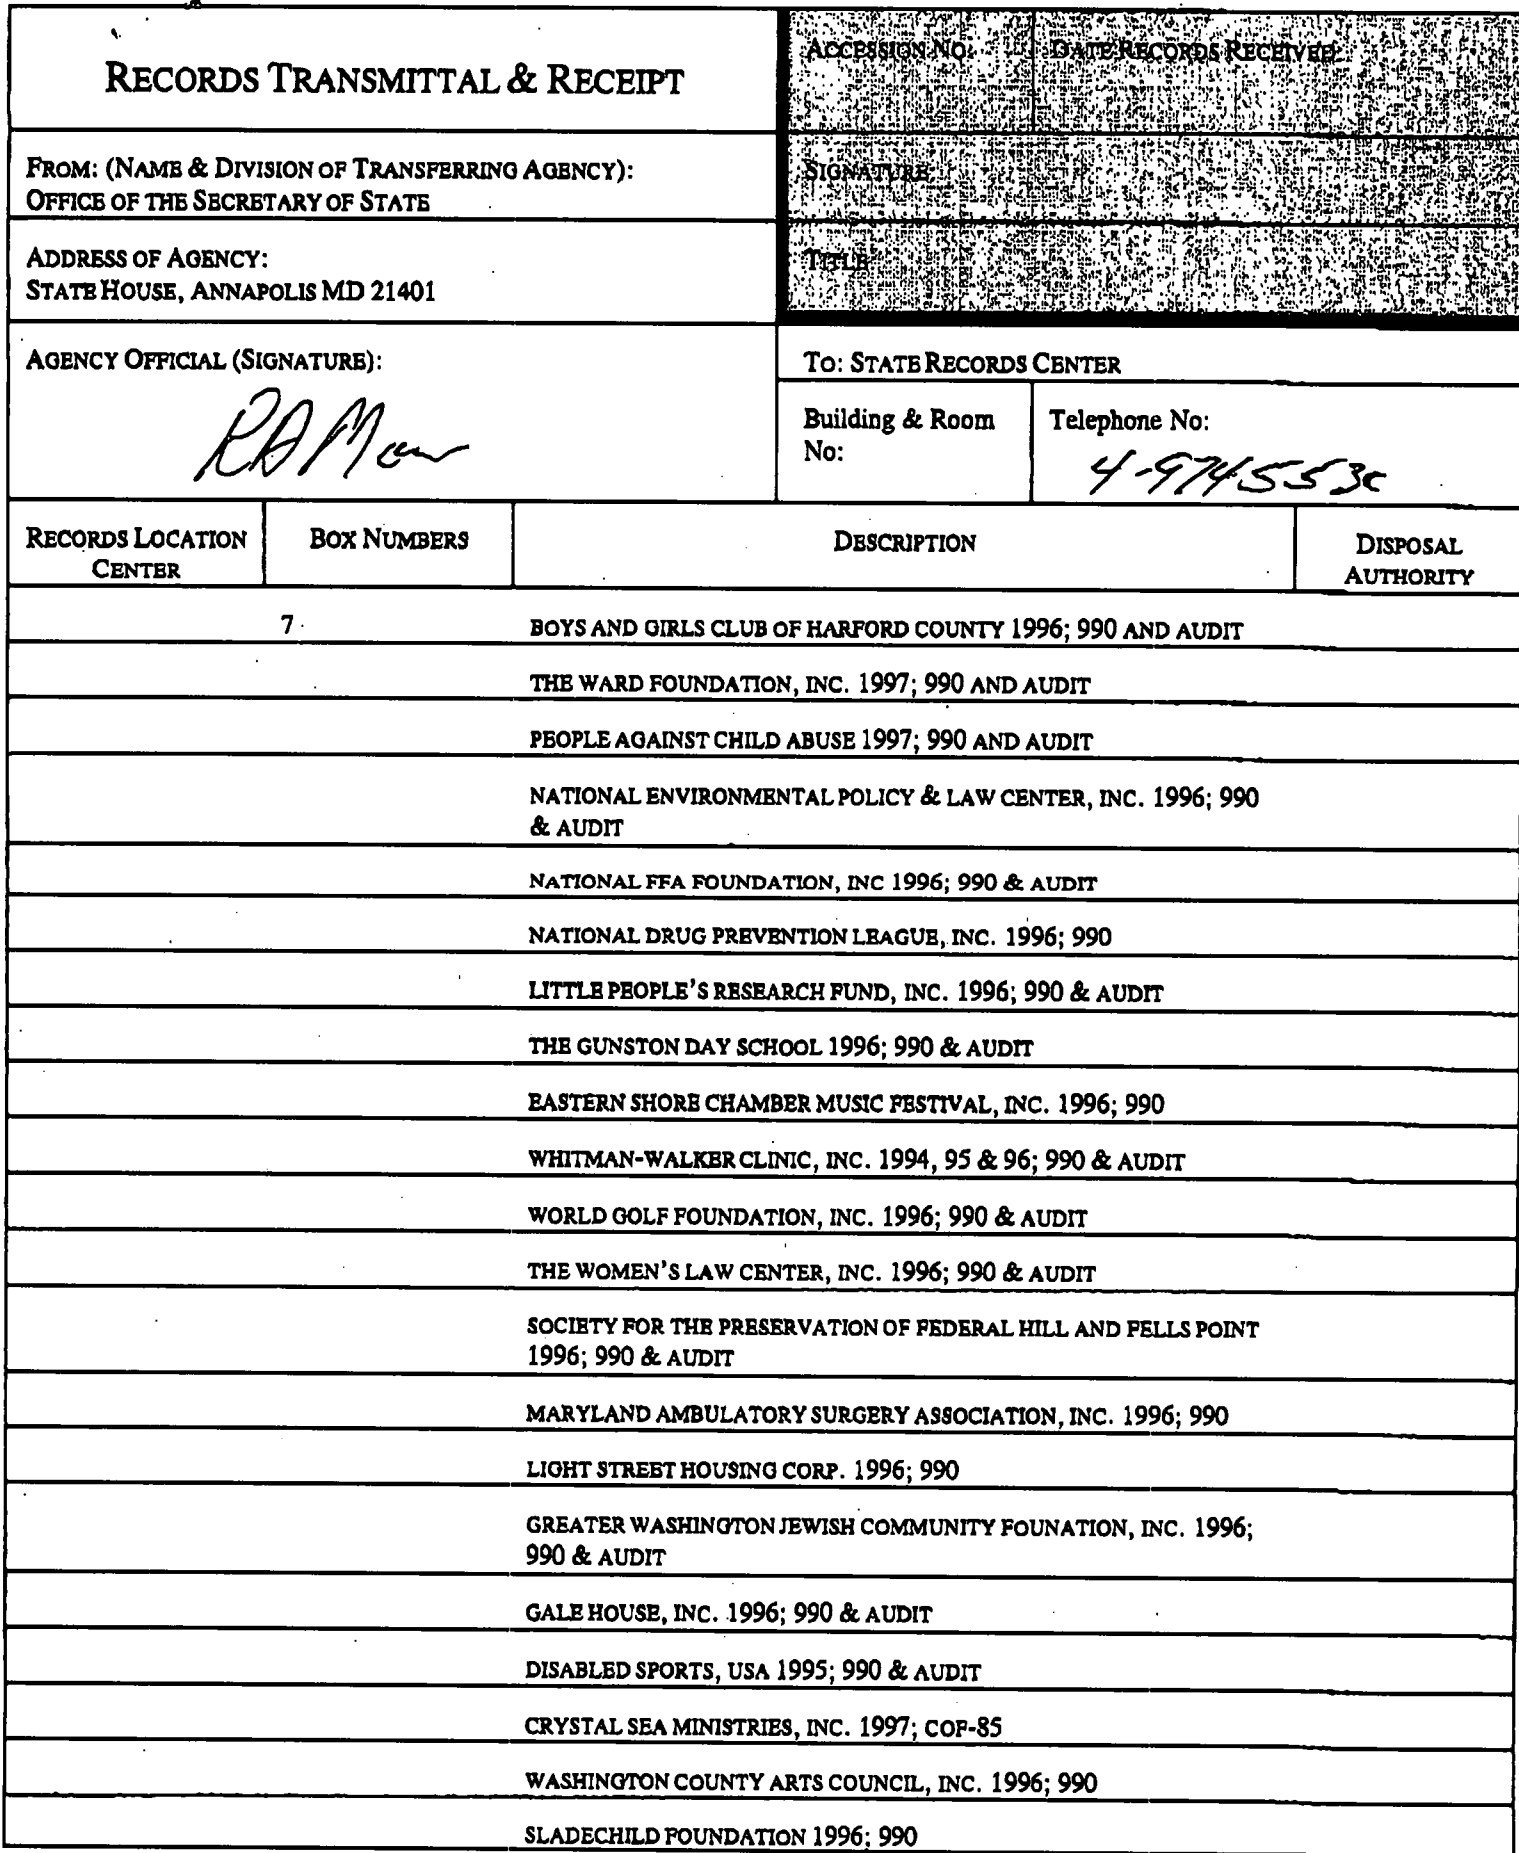 RECORDS TRANSMITTAL & RECEIPT
ACCESSION NO.
DATE RECORDS RECEIVED
FROM: (NAME & DIVISION OF TRANSFERRING AGENCY):
OFFICE OF THE SECRETARY OF STATE
SIGNATURE
ADDRESS OF AGENCY:
STATE HOUSE, ANNAPOLIS MD 21401
TITLE
AGENCY OFFICIAL (SIGNATURE):
TO: STATE RECORDS CENTER
Building & Room
No:
Telephone No:
RECORDS LOCATION
CENTER
BOX NUMBERS
DESCRIPTION
DISPOSAL
AUTHORITY
7
BOYS AND GIRLS CLUB OF HARFORD COUNTY 1996; 990 AND AUDIT
THE WARD FOUNDATION, INC. 1997; 990 AND AUDIT
PEOPLE AGAINST CHILD ABUSE 1997; 990 AND AUDIT
NATIONAL ENVIRONMENTAL POLICY & LAW CENTER, INC. 1996; 990
& AUDIT
NATIONAL FFA FOUNDATION, INC 1996; 990 & AUDIT
NATIONAL DRUG PREVENTION LEAGUE, INC. 1996; 990
LITTLE PEOPLE'S RESEARCH FUND, INC. 1996; 990 & AUDIT
THE GUNSTON DAY SCHOOL 1996; 990 & AUDIT
EASTERN SHORE CHAMBER MUSIC FESTIVAL, INC. 1996; 990
WHITMAN-WALKER CLINIC, INC. 1994, 95 & 96; 990 & AUDIT
WORLD GOLF FOUNDATION, INC. 1996; 990 & AUDIT
THE WOMEN'S LAW CENTER, INC. 1996; 990 & AUDIT
SOCIETY FOR THE PRESERVATION OF FEDERAL HILL AND FELLS POINT
1996; 990 & AUDIT
MARYLAND AMBULATORY SURGERY ASSOCIATION, INC. 1996; 990
LIGHT STREET HOUSING CORP. 1996; 990
GREATER WASHINGTON JEWISH COMMUNITY FOUNATION, INC. 1996;
990 & AUDIT
GALE HOUSE, INC. 1996; 990 & AUDIT
DISABLED SPORTS, USA 1995; 990 & AUDIT
CRYSTAL SEA MINISTRIES, INC. 1997; COF-85
WASHINGTON COUNTY ARTS COUNCIL, INC. 1996; 990
SLADECHILD FOUNDATION 1996; 990